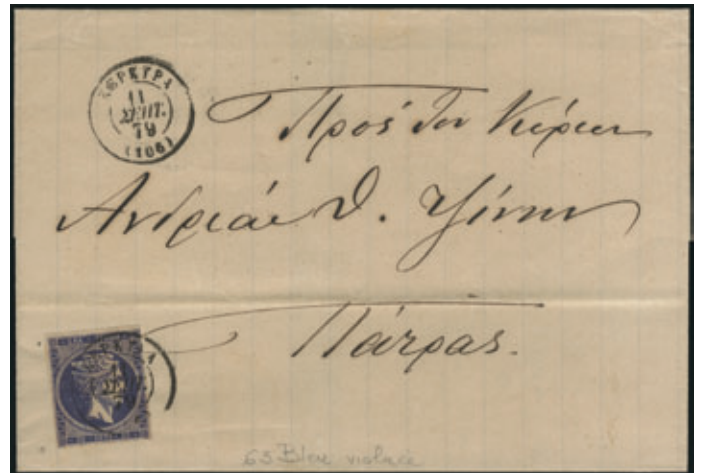 ΚΕΡΚΥΡΑ
11
ΣΕΠΤ.
79
(106)
Πρὸς τον Κύριον
Ανδρέαν Θ. Τζίνην
Πάτρας.
63 Bleu violacé